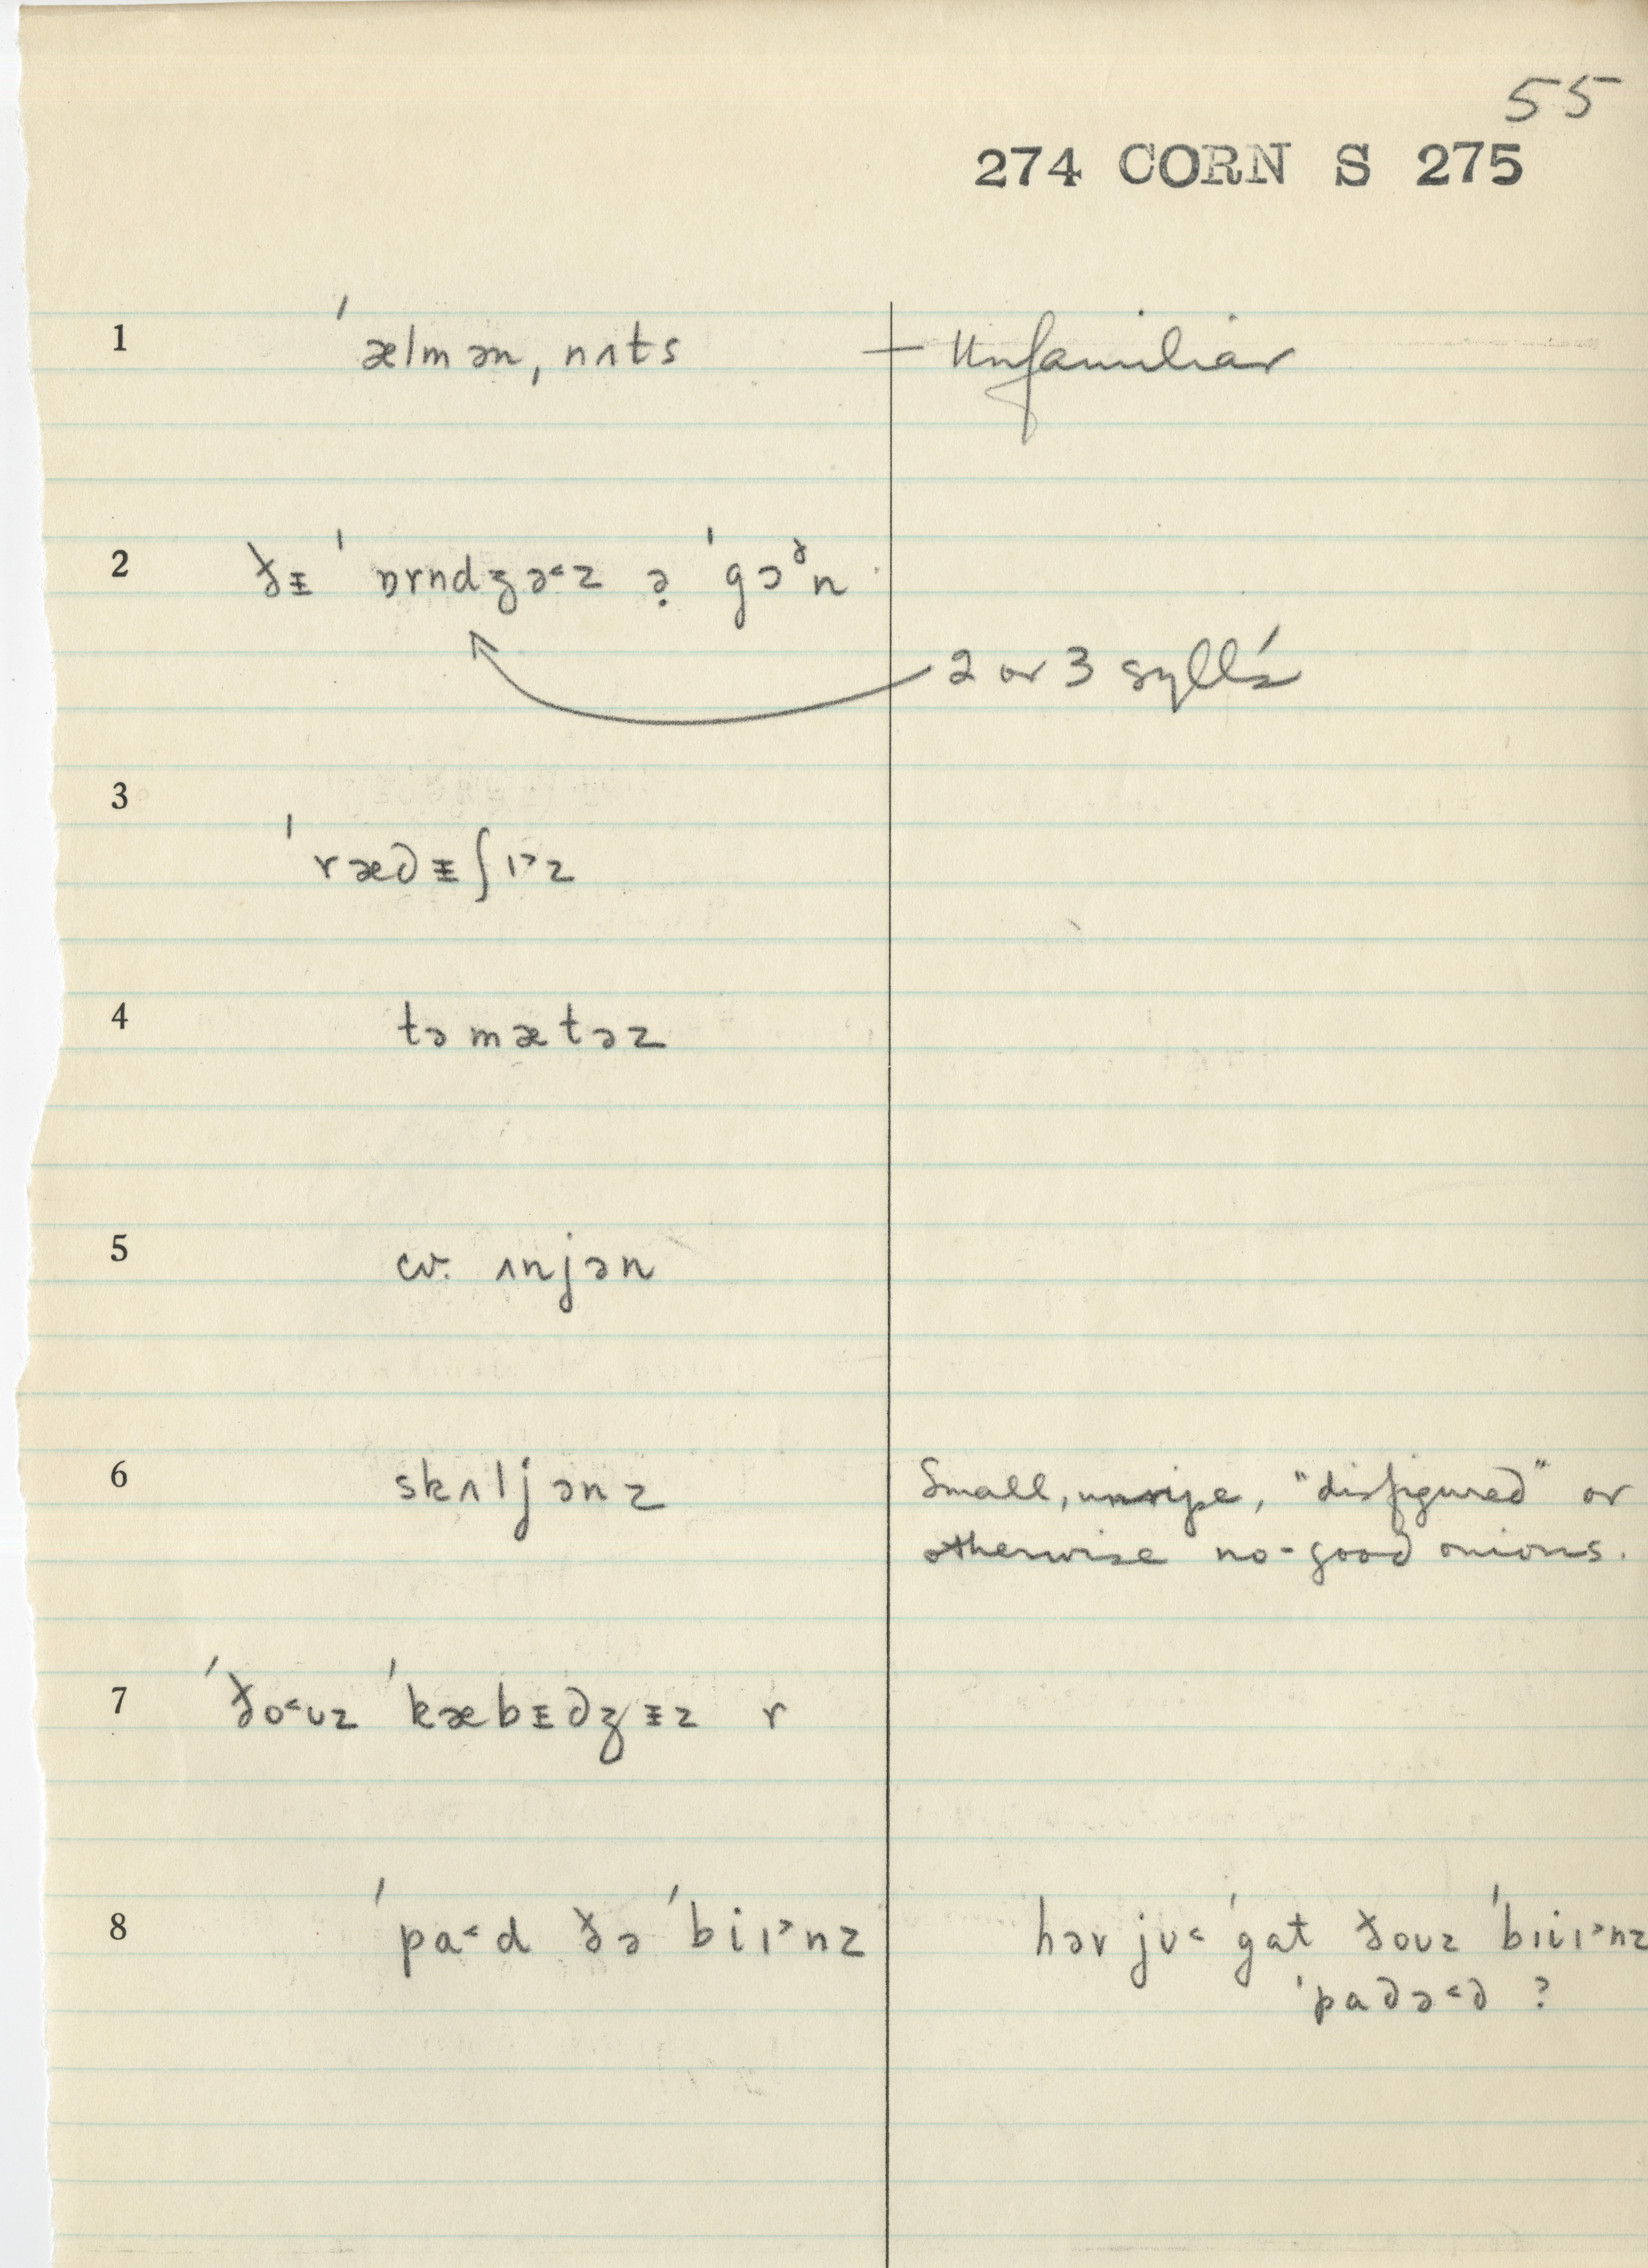 55
274 CORN S 275
1 ˈælmənˌnʌts — Unfamiliar
2 ðᵻ ˈɒrndʒə˂z ə̣ ˈgɔᵟn
2 or 3 syll's
3 ˈræd̪ᵻʃɪ˃z
4 təmætəz
5 cv. ʌnjən
6 skʌljənz Small, unripe, "disfigured" or
otherwise no-good onions.
7 ˈðo˂ʊz ˈkæbᵻdʒᵻz r
8 ˈpa˂d ðə ˈbiɪ˃nz həv jʊ˂ ˈgat ðoʊz ˈbɪiɪ˃nz
ˈpadə˂d ?